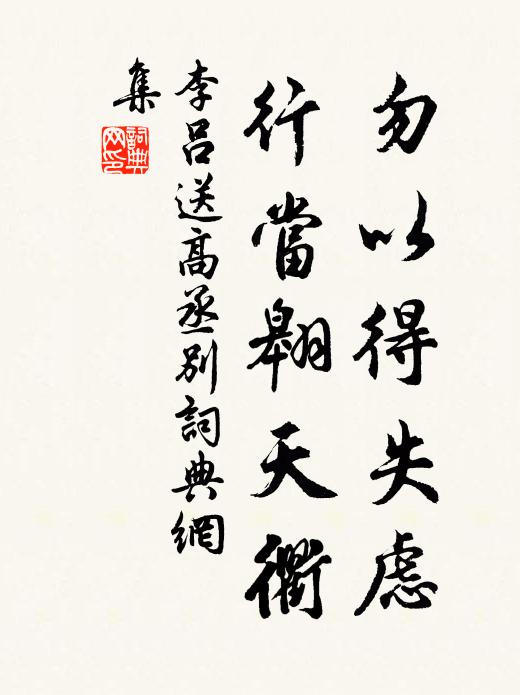 勿以得失慮
行當翱天衢
李呂送高丞別詞典網
集
詞典
网印